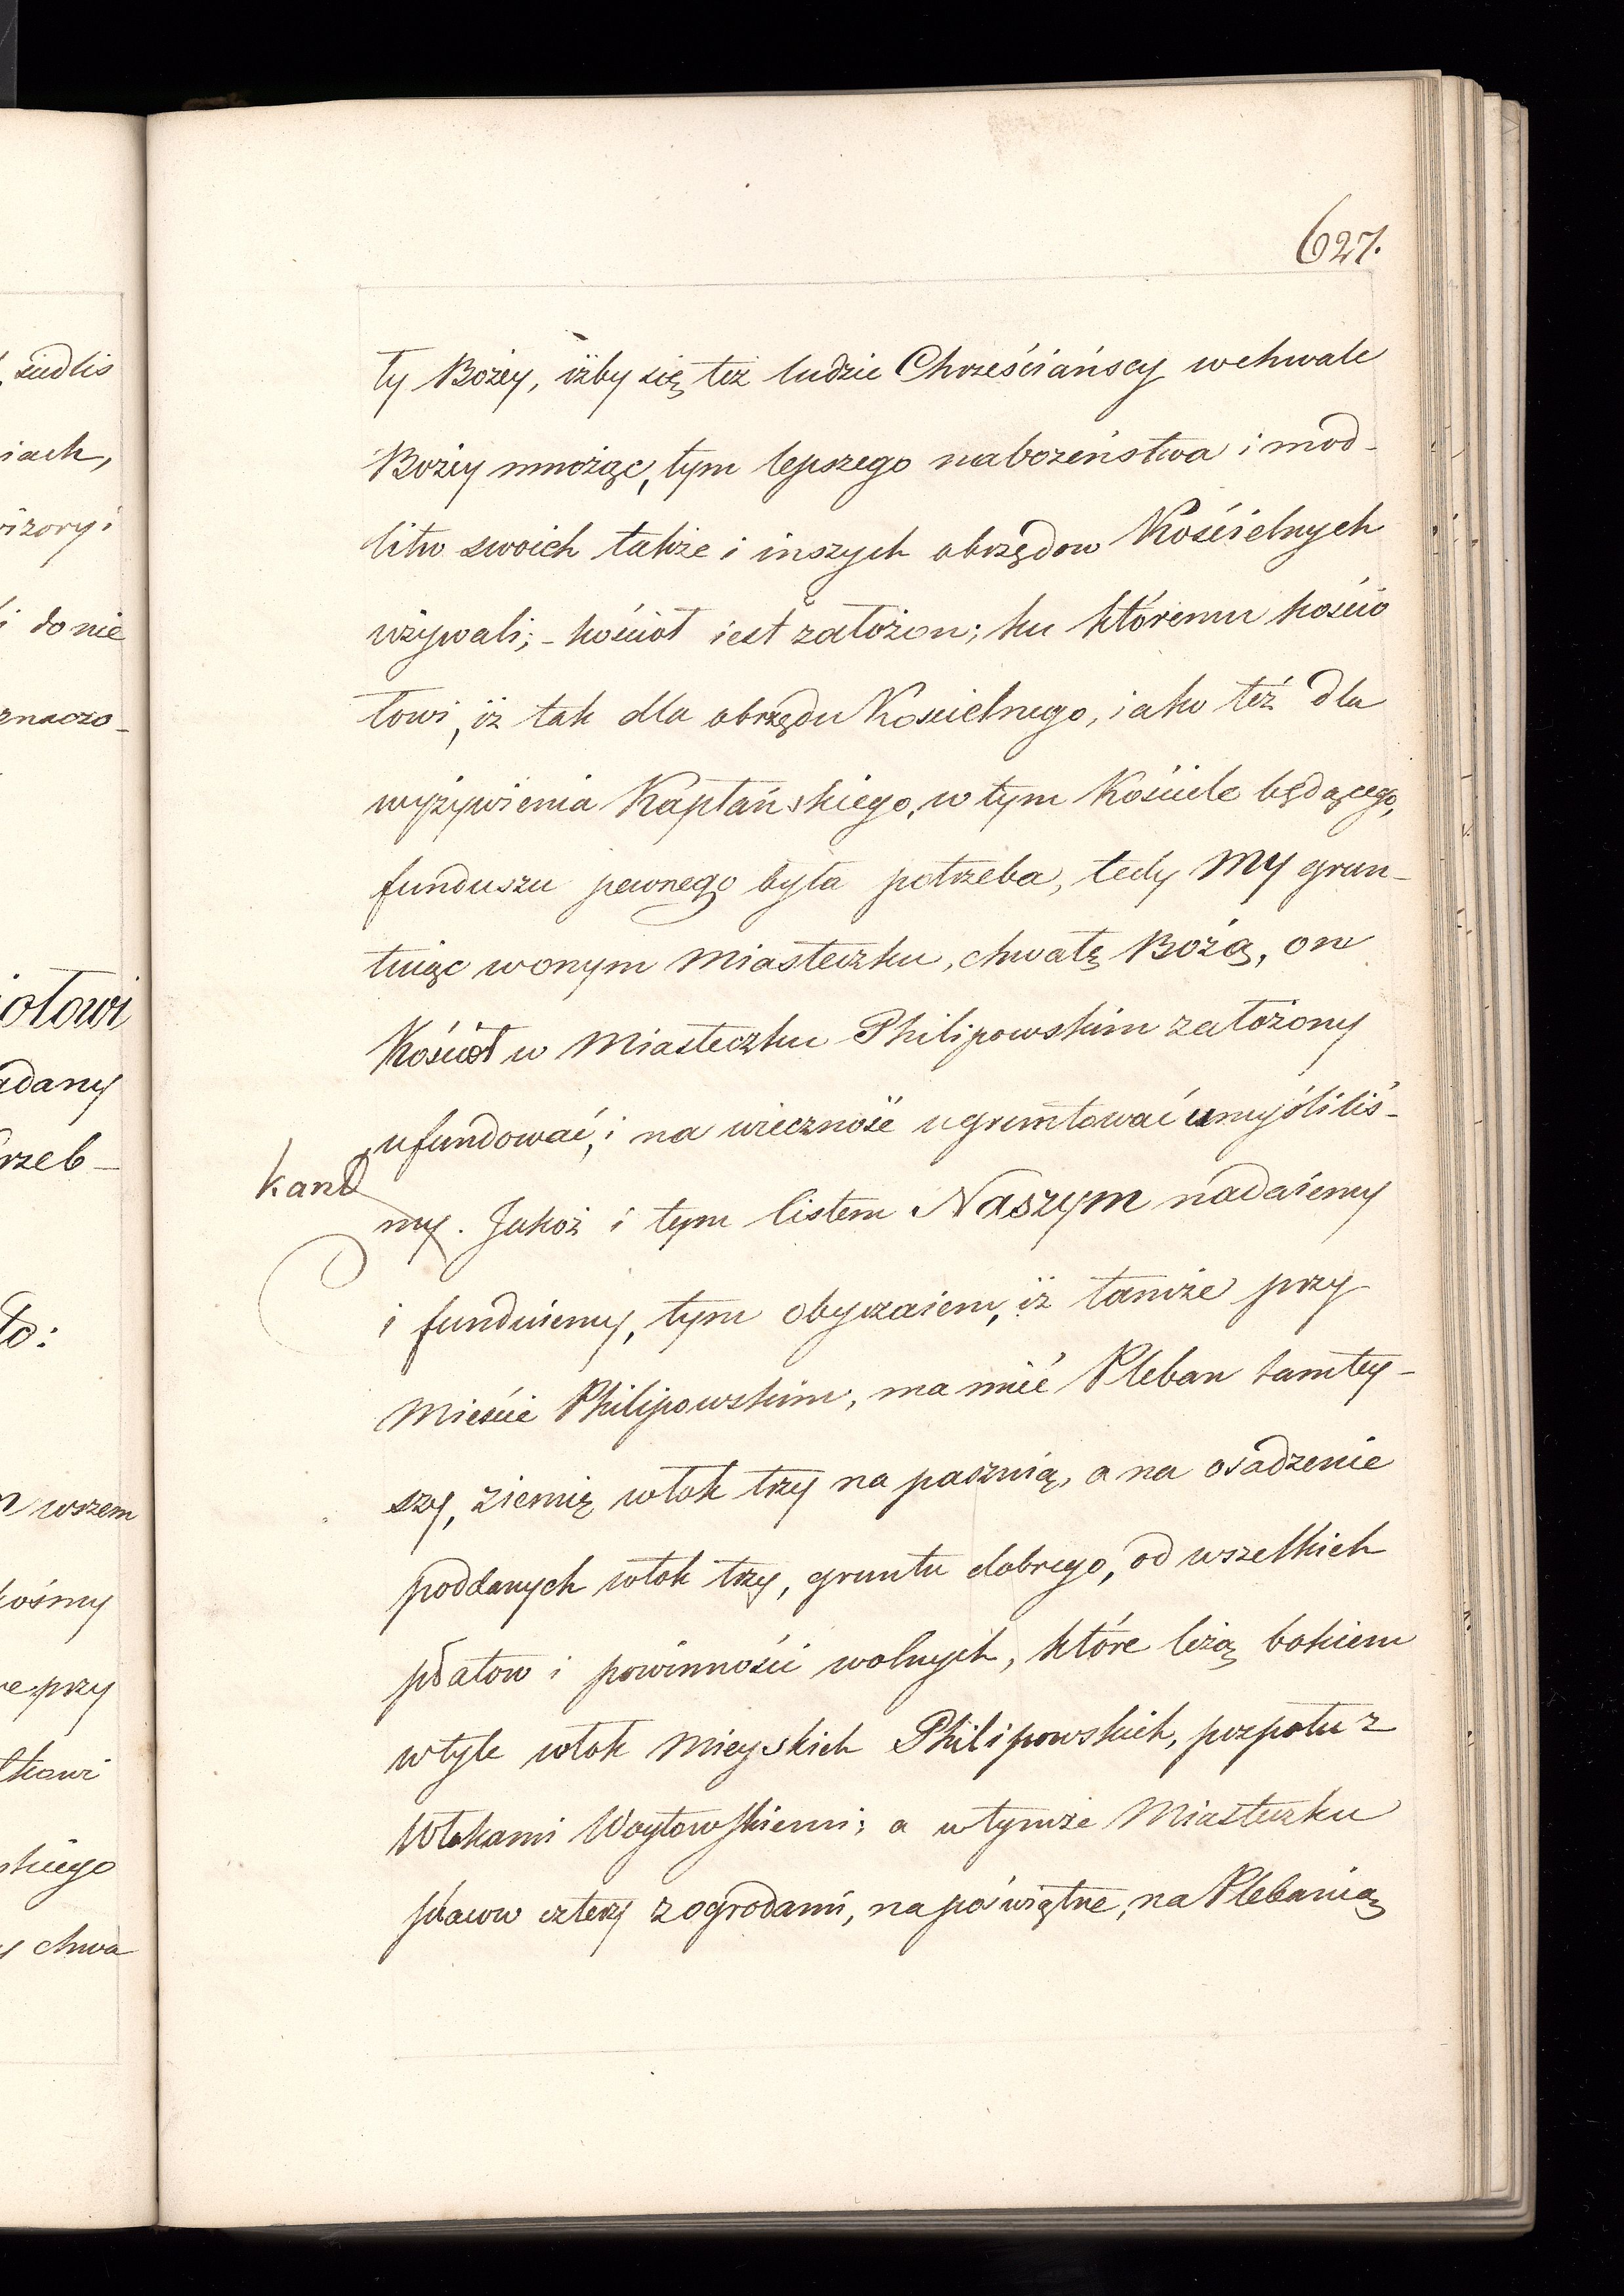 627.
ły Bożey, iżby się też ludzie Chrześciańscy wchwale
Bożey mnożąc, tym lepszego nabożeństwa i mod-
litw swoich także i inszych obrzędow Kościelnych
używali; - kościoł iest założon; ku któremu kościo
łowi, iż tak dla obrzędu Koscielnego, iako też dla
wyżywienia Kapłańskiego, w tym Kościele będącego,
funduszu pewnego była potrzeba, tedy My grun-
tuiąc wonym Miasteczku, chwałę Bożą, on
Kościoł w Miasteczku Philipowskim założony
ufundować, i na wieczność ugruntować umyślilis-
my. Jakoż i tym listem Naszym nadaiemy
i funduiemy, tym obyczaiem, iż tamże przy
Mieście Philipowskim, ma mieć Pleban tamtey-
szy, ziemię włok trzy na pasznią, a na osadzenie
poddanych włok trzy, gruntu dobrego, od wszelkich
płatow i powinności wolnych, które leżą bokiem
wtyle włok Mieyskich Philipowskich, pospołu z
Włokami Woytowskiemi; a wtymże Miasteczku
placow cztery z ogrodami, na poświętne, na Plebanią
siedlis
iach,
wizory i
i do nie
znaczo-
iołowi
adany
rzeb-
to:
wszem
łośmy
re przy
skiego
chwa